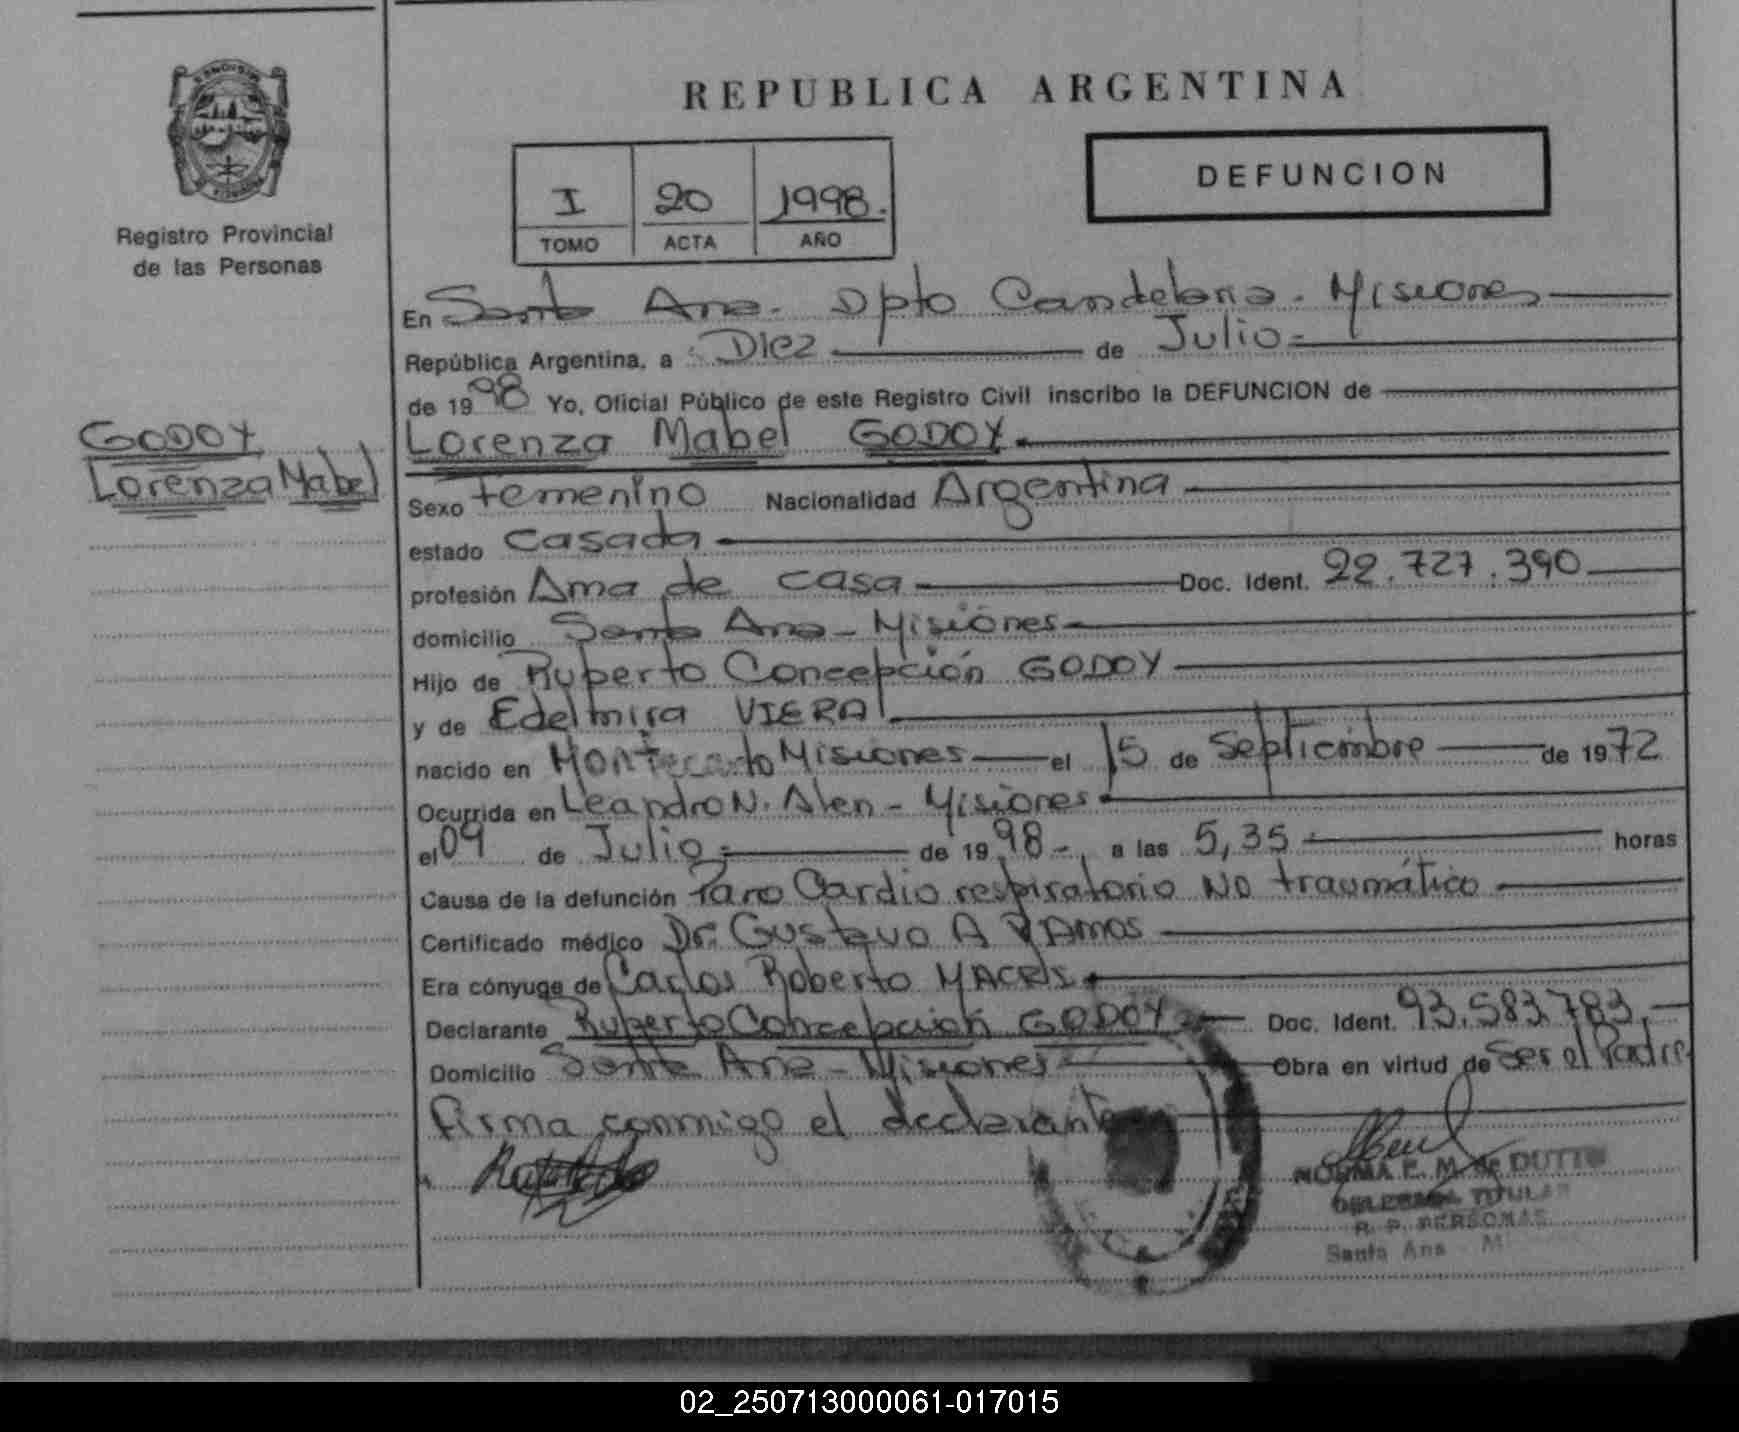 REPUBLICA ARGENTINA
DEFUNCION
I 20 1998.
TOMO ACTA AÑO
Registro Provincial
de las Personas
GODOY
Lorenza Mabel
En Santa Ana. Dpto Candelaria. Misiones
República Argentina, a Diez de Julio
de 1998 Yo, Oficial Público de este Registro Civil inscribo la DEFUNCION de
Lorenza Mabel GODOY.
Sexo femenino Nacionalidad Argentina
estado Casada
profesión Ama de casa Doc. Ident. 22.727.390
domicilio Santa Ana - Misiones
Hijo de Ruperto Concepción GODOY
y de Edelmira VIERA
nacido en Montecarlo Misiones el 15 de Septiembre de 1972
Ocurrida en Leandro N. Alen - Misiones
el 09 de Julio de 1998 - a las 5,35 horas
Causa de la defunción Paro Cardio respiratorio No traumático
Certificado médico Dr. Gustavo A RAmos
Era cónyuge de Carlos Roberto
Declarante Ruperto Concepción GODOY Doc. Ident. 93.583.783
Domicilio Santa Ana - Misiones Obra en virtud de Ser el Padre
Firma conmigo el declarante
NORMA E. M. de
TITULAR
R. P. PERSONAS
Santa Ana - M
02_250713000061-017015